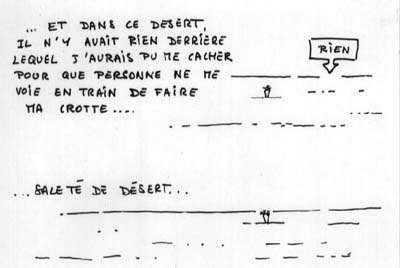 ... ET DANS CE DESERT,
IL N'Y AVAIT RIEN DERRIÈRE
LEQUEL J'AURAIS PU ME CACHER
POUR QUE PERSONNE NE ME
VOIE EN TRAIN DE FAIRE
MA CROTTE....
RIEN
...SALETÉ DE DÉSERT...